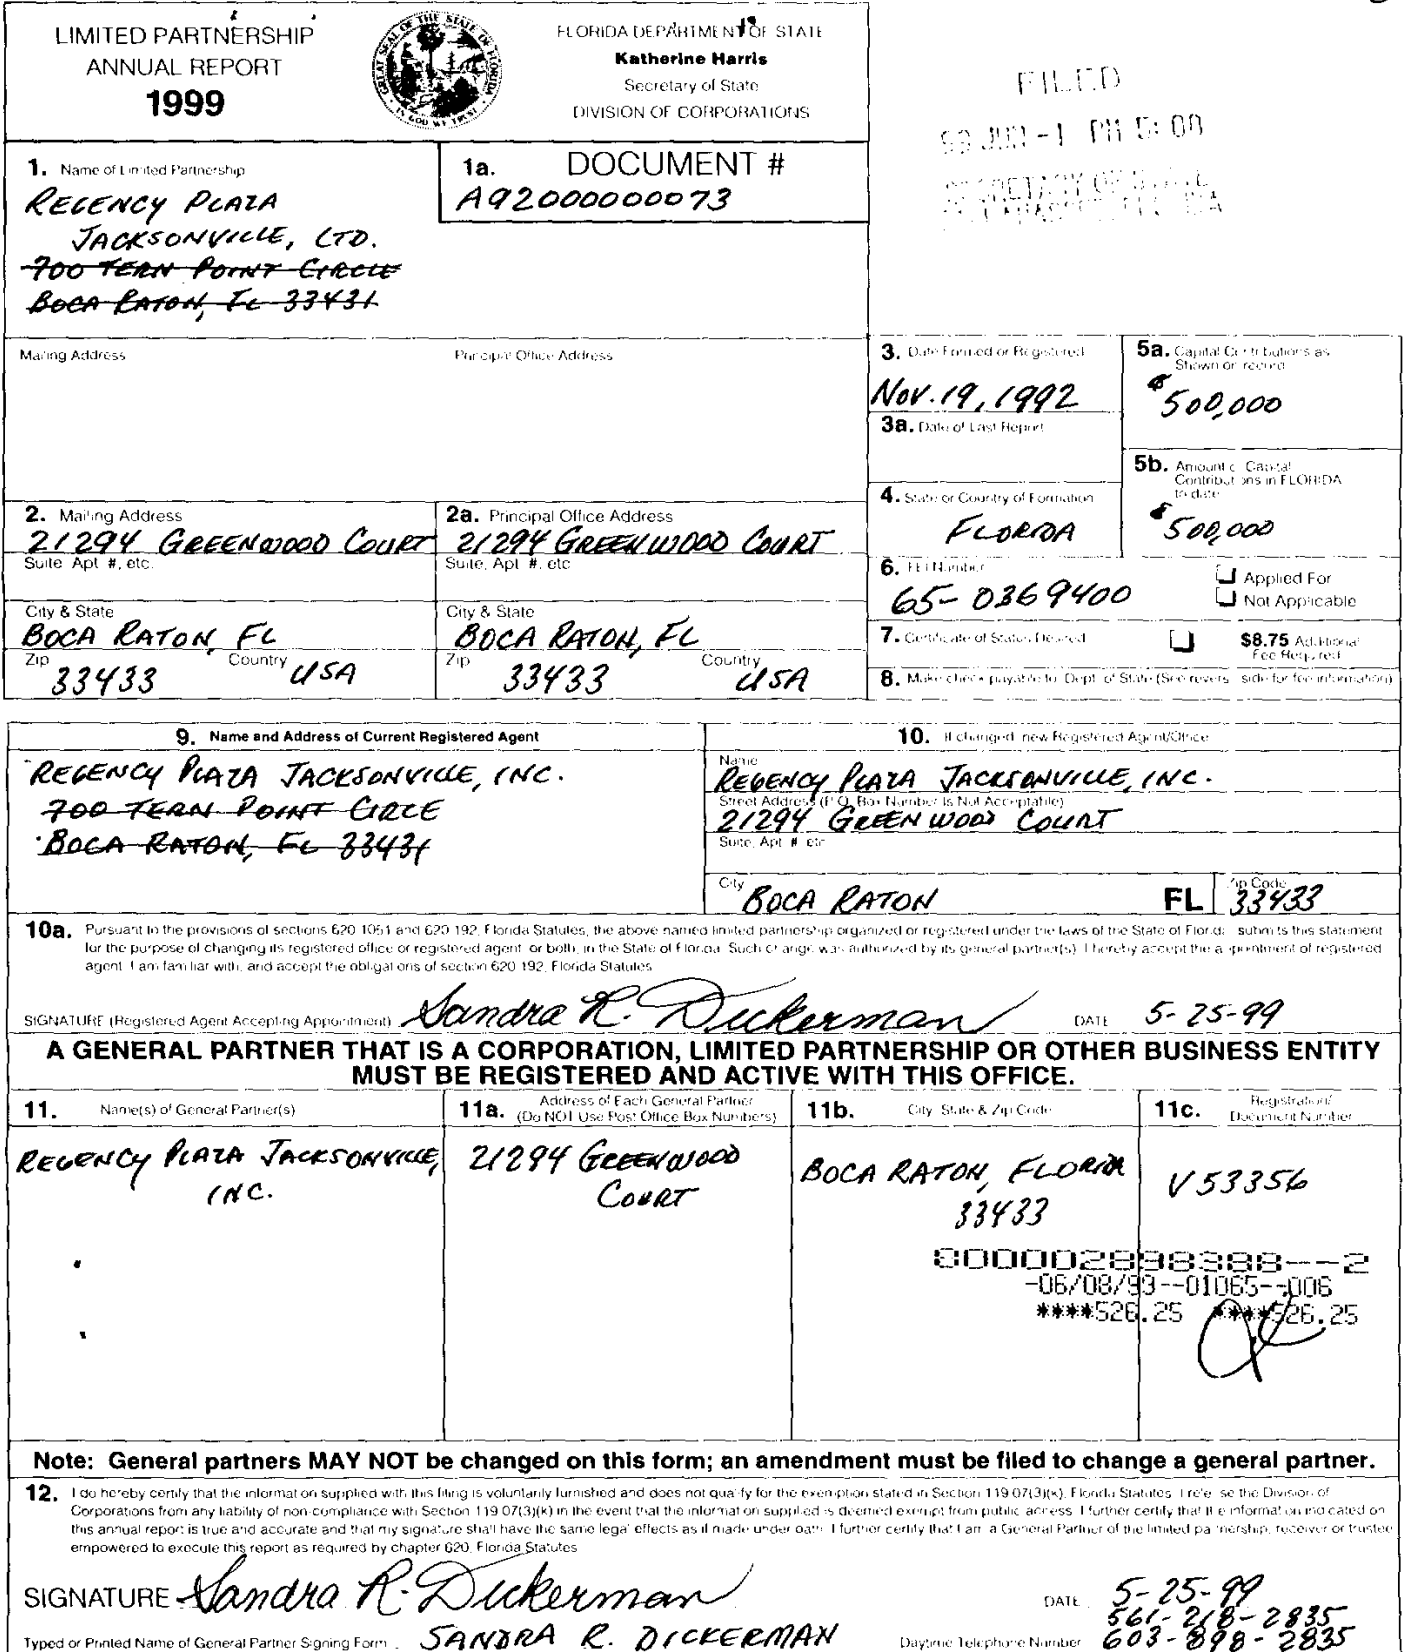 LIMITED PARTNERSHIP
ANNUAL REPORT
1999
FLORIDA DEPARTMENT OF STATE
Katherine Harris
Secretary of State
DIVISION OF CORPORATIONS
FILED
99 JUN -1 PM 5:00
1. Name of Limited Partnership
REGENCY PLAZA
JACKSONVILLE, LTD.
700 TERN POINT CIRCLE
BOCA RATON, FL 33431
1a. DOCUMENT #
A92000000073
Mailing Address
Principal Office Address
2. Mailing Address
21294 GREENWOOD COURT
Suite Apt #, etc.
City & State
BOCA RATON, FL
Zip 33433 Country USA
2a. Principal Office Address
21294 GREENWOOD COURT
Suite, Apt #, etc
City & State
BOCA RATON, FL
Zip 33433 Country USA
3. Date Formed or Registered
Nov. 19, 1992
3a. Date of Last Report
4. State or Country of Formation
FLORIDA
5a. Capital Contributions as
Shown on record
$500,000
5b. Amount of Capital
Contributions in FLORIDA
to date
$500,000
6. FEI Number
65-0369400
Applied For
Not Applicable
7. Certificate of Status Desired
$8.75 Additional
Fee Required
8. Make check payable to Dept. of State (See reverse side for fee information)
9. Name and Address of Current Registered Agent
REGENCY PLAZA JACKSONVILLE, INC.
700 TERN POINT CIRCLE
BOCA RATON, FL 33431
10. If changed, new Registered Agent/Office
Name
REGENCY PLAZA JACKSONVILLE, INC.
Street Address (P.O. Box Number Is Not Acceptable)
21294 GREENWOOD COURT
Suite, Apt # etc
City BOCA RATON FL Zip Code 33433
10a. Pursuant to the provisions of sections 620 1051 and 620 192, Florida Statutes, the above named limited partnership organized or registered under the laws of the State of Florida submits this statement
for the purpose of changing its registered office or registered agent, or both, in the State of Florida. Such change was authorized by its general partner(s). I hereby accept the appointment of registered
agent. I am familiar with, and accept the obligations of section 620 192, Florida Statutes
SIGNATURE (Registered Agent Accepting Appointment) Sandra R. Dickerman DATE 5-25-99
A GENERAL PARTNER THAT IS A CORPORATION, LIMITED PARTNERSHIP OR OTHER BUSINESS ENTITY
MUST BE REGISTERED AND ACTIVE WITH THIS OFFICE.
11. Name(s) of General Partner(s)
11a. Address of Each General Partner
(Do NOT Use Post Office Box Numbers)
11b. City, State & Zip Code
11c. Registration/
Document Number
REGENCY PLAZA JACKSONVILLE,
INC.
21294 GREENWOOD
COURT
BOCA RATON, FLORIDA
33433
V53356
800002898388--2
-06/08/99--01065--006
****526.25 ****526.25
Note: General partners MAY NOT be changed on this form; an amendment must be filed to change a general partner.
12. I do hereby certify that the information supplied with this filing is voluntarily furnished and does not qualify for the exemption stated in Section 119 07(3)(k), Florida Statutes. I release the Division of
Corporations from any liability of non-compliance with Section 119 07(3)(k) in the event that the information supplied is deemed exempt from public access. I further certify that the information indicated on
this annual report is true and accurate and that my signature shall have the same legal effects as if made under oath. I further certify that I am a General Partner of the limited partnership, receiver or trustee
empowered to execute this report as required by chapter 620, Florida Statutes
SIGNATURE Sandra R. Dickerman DATE 5-25-99
561-218-2835
Typed or Printed Name of General Partner Signing Form SANDRA R. DICKERMAN Daytime Telephone Number 603-898-2835